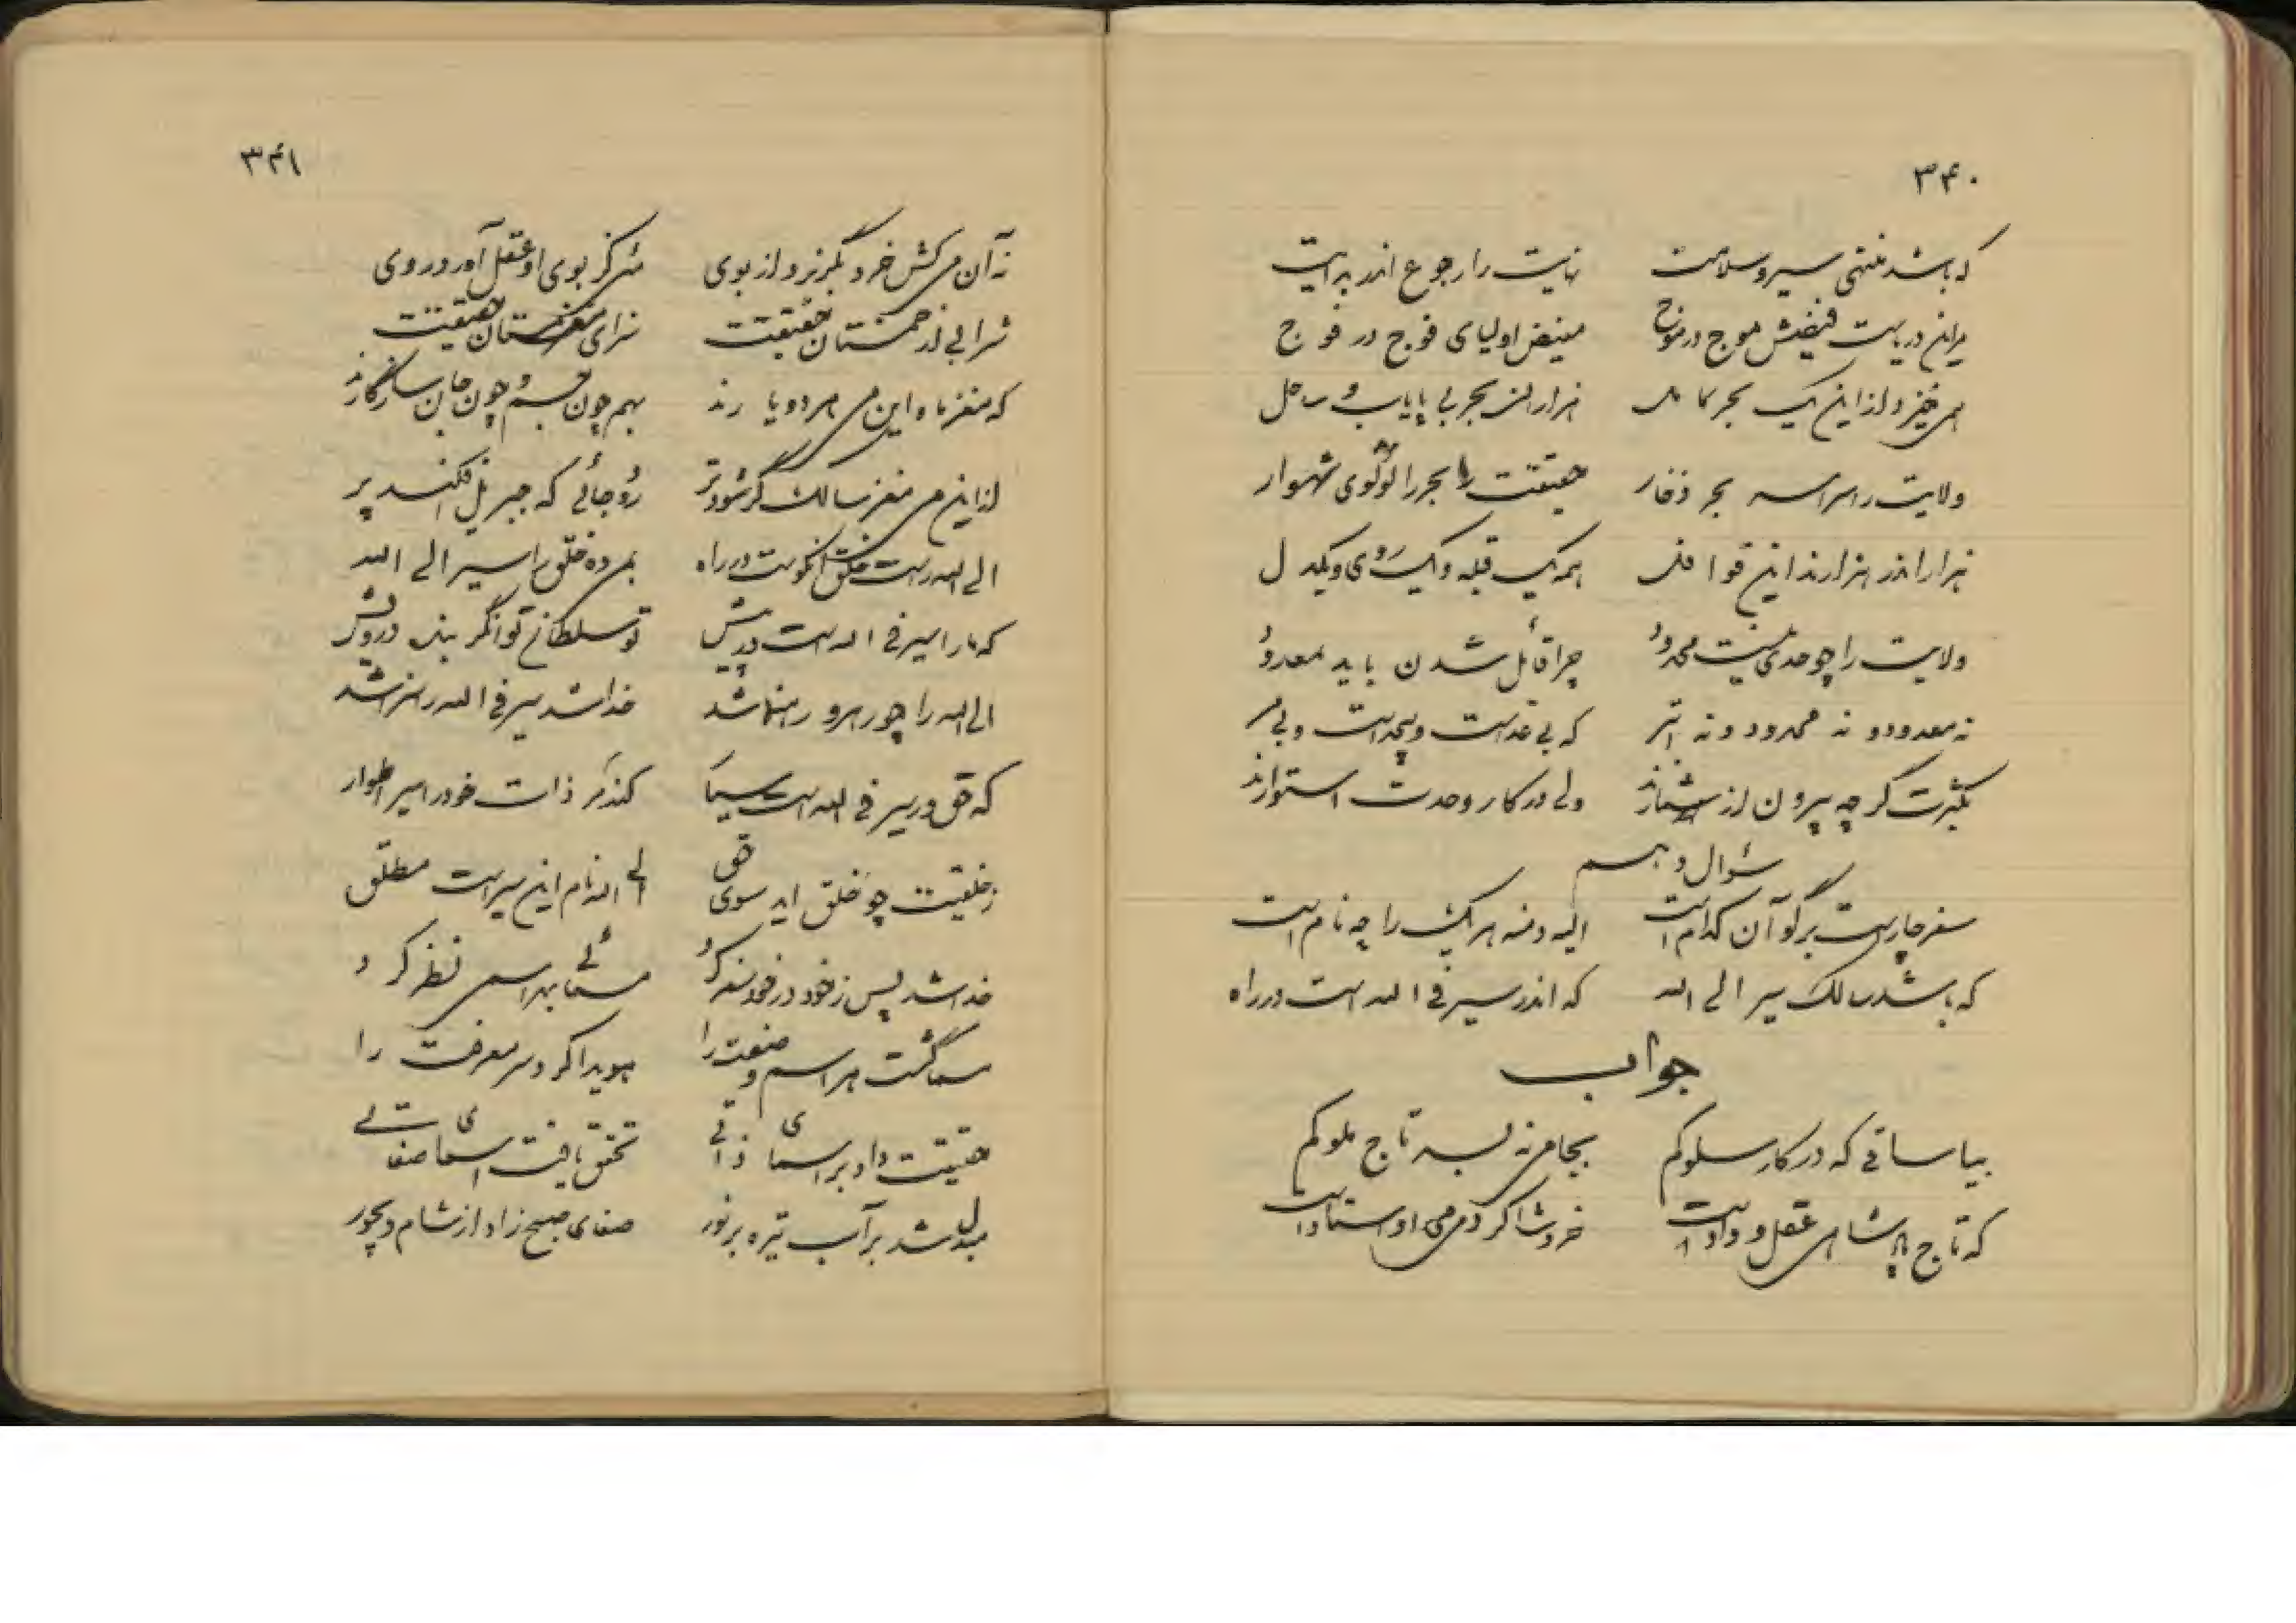 ۳۴۰
که باشد منتهی سیر و سلامت نهایت را رجوع اندر بدایت
دریست فیضش موج در موج مفیض اولیای فوج در فوج
همی خیزد از این یک بحر کامل هزاران بحر بی پایاب و ساحل
ولایت را سراسر بحر ذخار حقیقت بحر را لؤلؤی شهوار
هزار اندر هزارند این قوافل همه یک قبله و یک روی و یکدل
ولایت را چو حدی نیست محدود چرا قائل شدن باید بمعدود
نه معدود و نه محدود و نه ابتر که بی عد است و بیحد است و بی مر
بکثرت گر چه بیرون از شمارند ولی در کار وحدت استوارند
سئوال دهم
سفر چار است برگو آن کدام است الیه و منه هر یک را چه نام است
که باشد سالک سیر الی الله که اندر سیر فی الله است در راه
جواب
بیا ساقی که در کار سلوکم بجامی نه بسر تاج ملوکم
که تاج پادشاهی عقل و داد است خوشا کردمی او استاد است
۳۴۱
نه آن می کش خرد بگریزد از بوی میی کز بوی او عقل آورد روی
شرابی از خمستان حقیقت سزای مغز مستان حقیقت
که مغز ما و این می هر دو یارند بهم چون جسم و چون جان سازگارند
از این می مغز سالک گر شود تر رود جائی که جبریل افکند پر
الی الله است خلق آنکوست در راه خلق را سیر الی الله
که ما را سیر فی الله است در پیش تو سلطانی توانگر بنده درویش
الی الله را چو رهرو رهنما شد خدا شد سیر فی الله را سزا شد
که حق در سیر فی الله است سیار کند در ذات خود را سیر اطوار
ز خلقیت چو خلق آید سوی حق الی الله نام این سیر است مطلق
خدا شد پس ز خود در خود سفر کرد مسمائی بهر اسمی نظر کرد
مسما گشت هر اسم و صفت را هویدا کرد سر معرفت را
حقیقت داد بر اسمای ذاتی تحقق یافت اسمای صفاتی
مبدل شد بر آب تیره بر نور صفای صبح زاد از شام دیجور